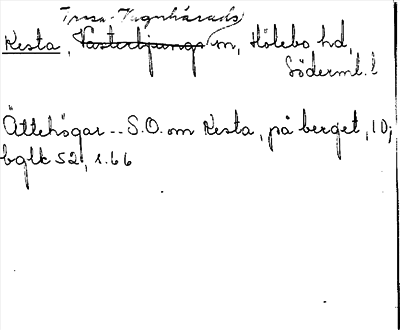 Trosa-Vagnhärads
Kesta, Västerljungs m, Hölebo hd,
Söderml. l
Ättehögar -- S.O. om Kesta, på berget, 10;
bglk 52, s. 66